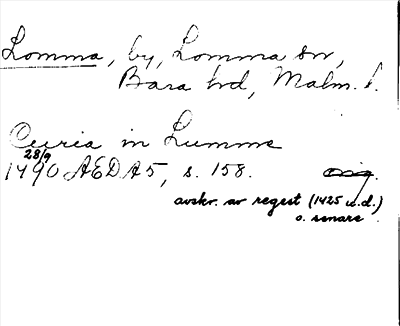 Lomma, by, Lomma sn,
Bara hd, Malm. l.
Curia in Lumme
28/9
1490 ÆDA5, s. 158. orig.
avskr. av regest (1425 u.d.)
o. senare